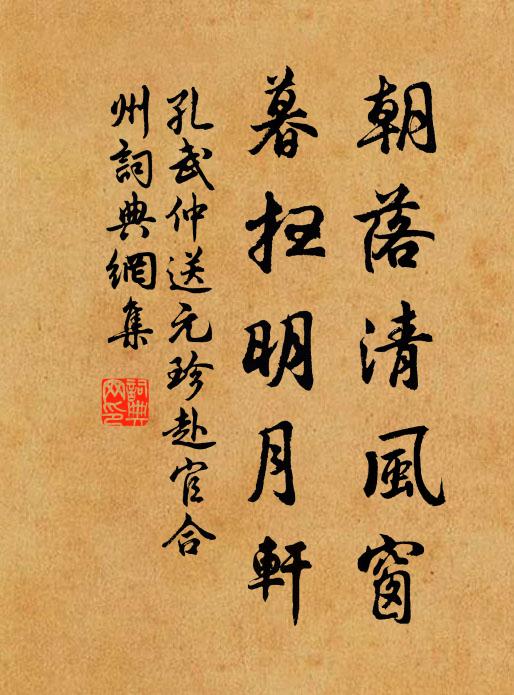 朝落清風窗
暮扫明月軒
孔武仲送元珍赴官合
州詞典網集
詞典
网印